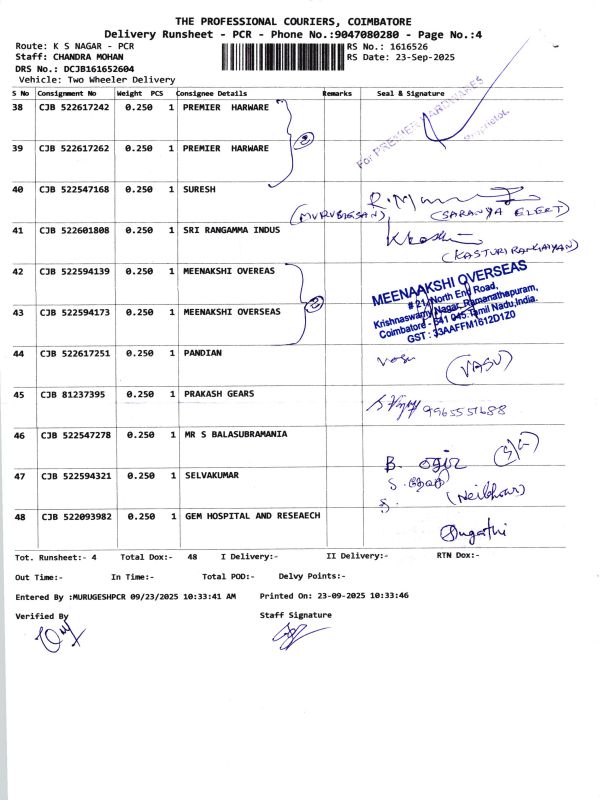 THE PROFESSIONAL COURIERS, COIMBATORE
Delivery Runsheet - PCR - Phone No.:9047080280 - Page No.:4
Route: K S NAGAR - PCR RS No.: 1616526
Staff: CHANDRA MOHAN RS Date: 23-Sep-2025
DRS No.: DCJB161652604
Vehicle: Two Wheeler Delivery
S No Consignment No Weight PCS Consignee Details Remarks Seal & Signature
38 CJB 522617242 0.250 1 PREMIER HARWARE
For PREMIER HARDWARES
Proprietor
39 CJB 522617262 0.250 1 PREMIER HARWARE
2
40 CJB 522547168 0.250 1 SURESH
(MURUGESAN) (SARANYA ELECT)
41 CJB 522601808 0.250 1 SRI RANGAMMA INDUS
(KASTURIRANGAIYAN)
42 CJB 522594139 0.250 1 MEENAKSHI OVEREAS
MEENAAKSHI OVERSEAS
# 21, North End Road,
Krishnaswamy Nagar, Ramanathapuram,
Coimbatore - 641 045. Tamil Nadu, India.
GST : 33AAFFM1612D1Z0
43 CJB 522594173 0.250 1 MEENAKSHI OVERSEAS
2
44 CJB 522617251 0.250 1 PANDIAN
Vasu (VASU)
45 CJB 81237395 0.250 1 PRAKASH GEARS
S Vijay 9965551688
46 CJB 522547278 0.250 1 MR S BALASUBRAMANIA
B.
47 CJB 522594321 0.250 1 SELVAKUMAR
S. (Neibhour)
48 CJB 522093982 0.250 1 GEM HOSPITAL AND RESEAECH
Sugathi
Tot. Runsheet:- 4 Total Dox:- 48 I Delivery:- II Delivery:- RTN Dox:-
Out Time:- In Time:- Total POD:- Delvy Points:-
Entered By :MURUGESHPCR 09/23/2025 10:33:41 AM Printed On: 23-09-2025 10:33:46
Verified By Staff Signature